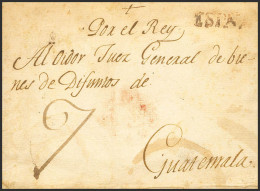 Por el Rey
ESPA.
Al Oidor Juez General de bie
nes de Difuntos de
7
Guatemala.